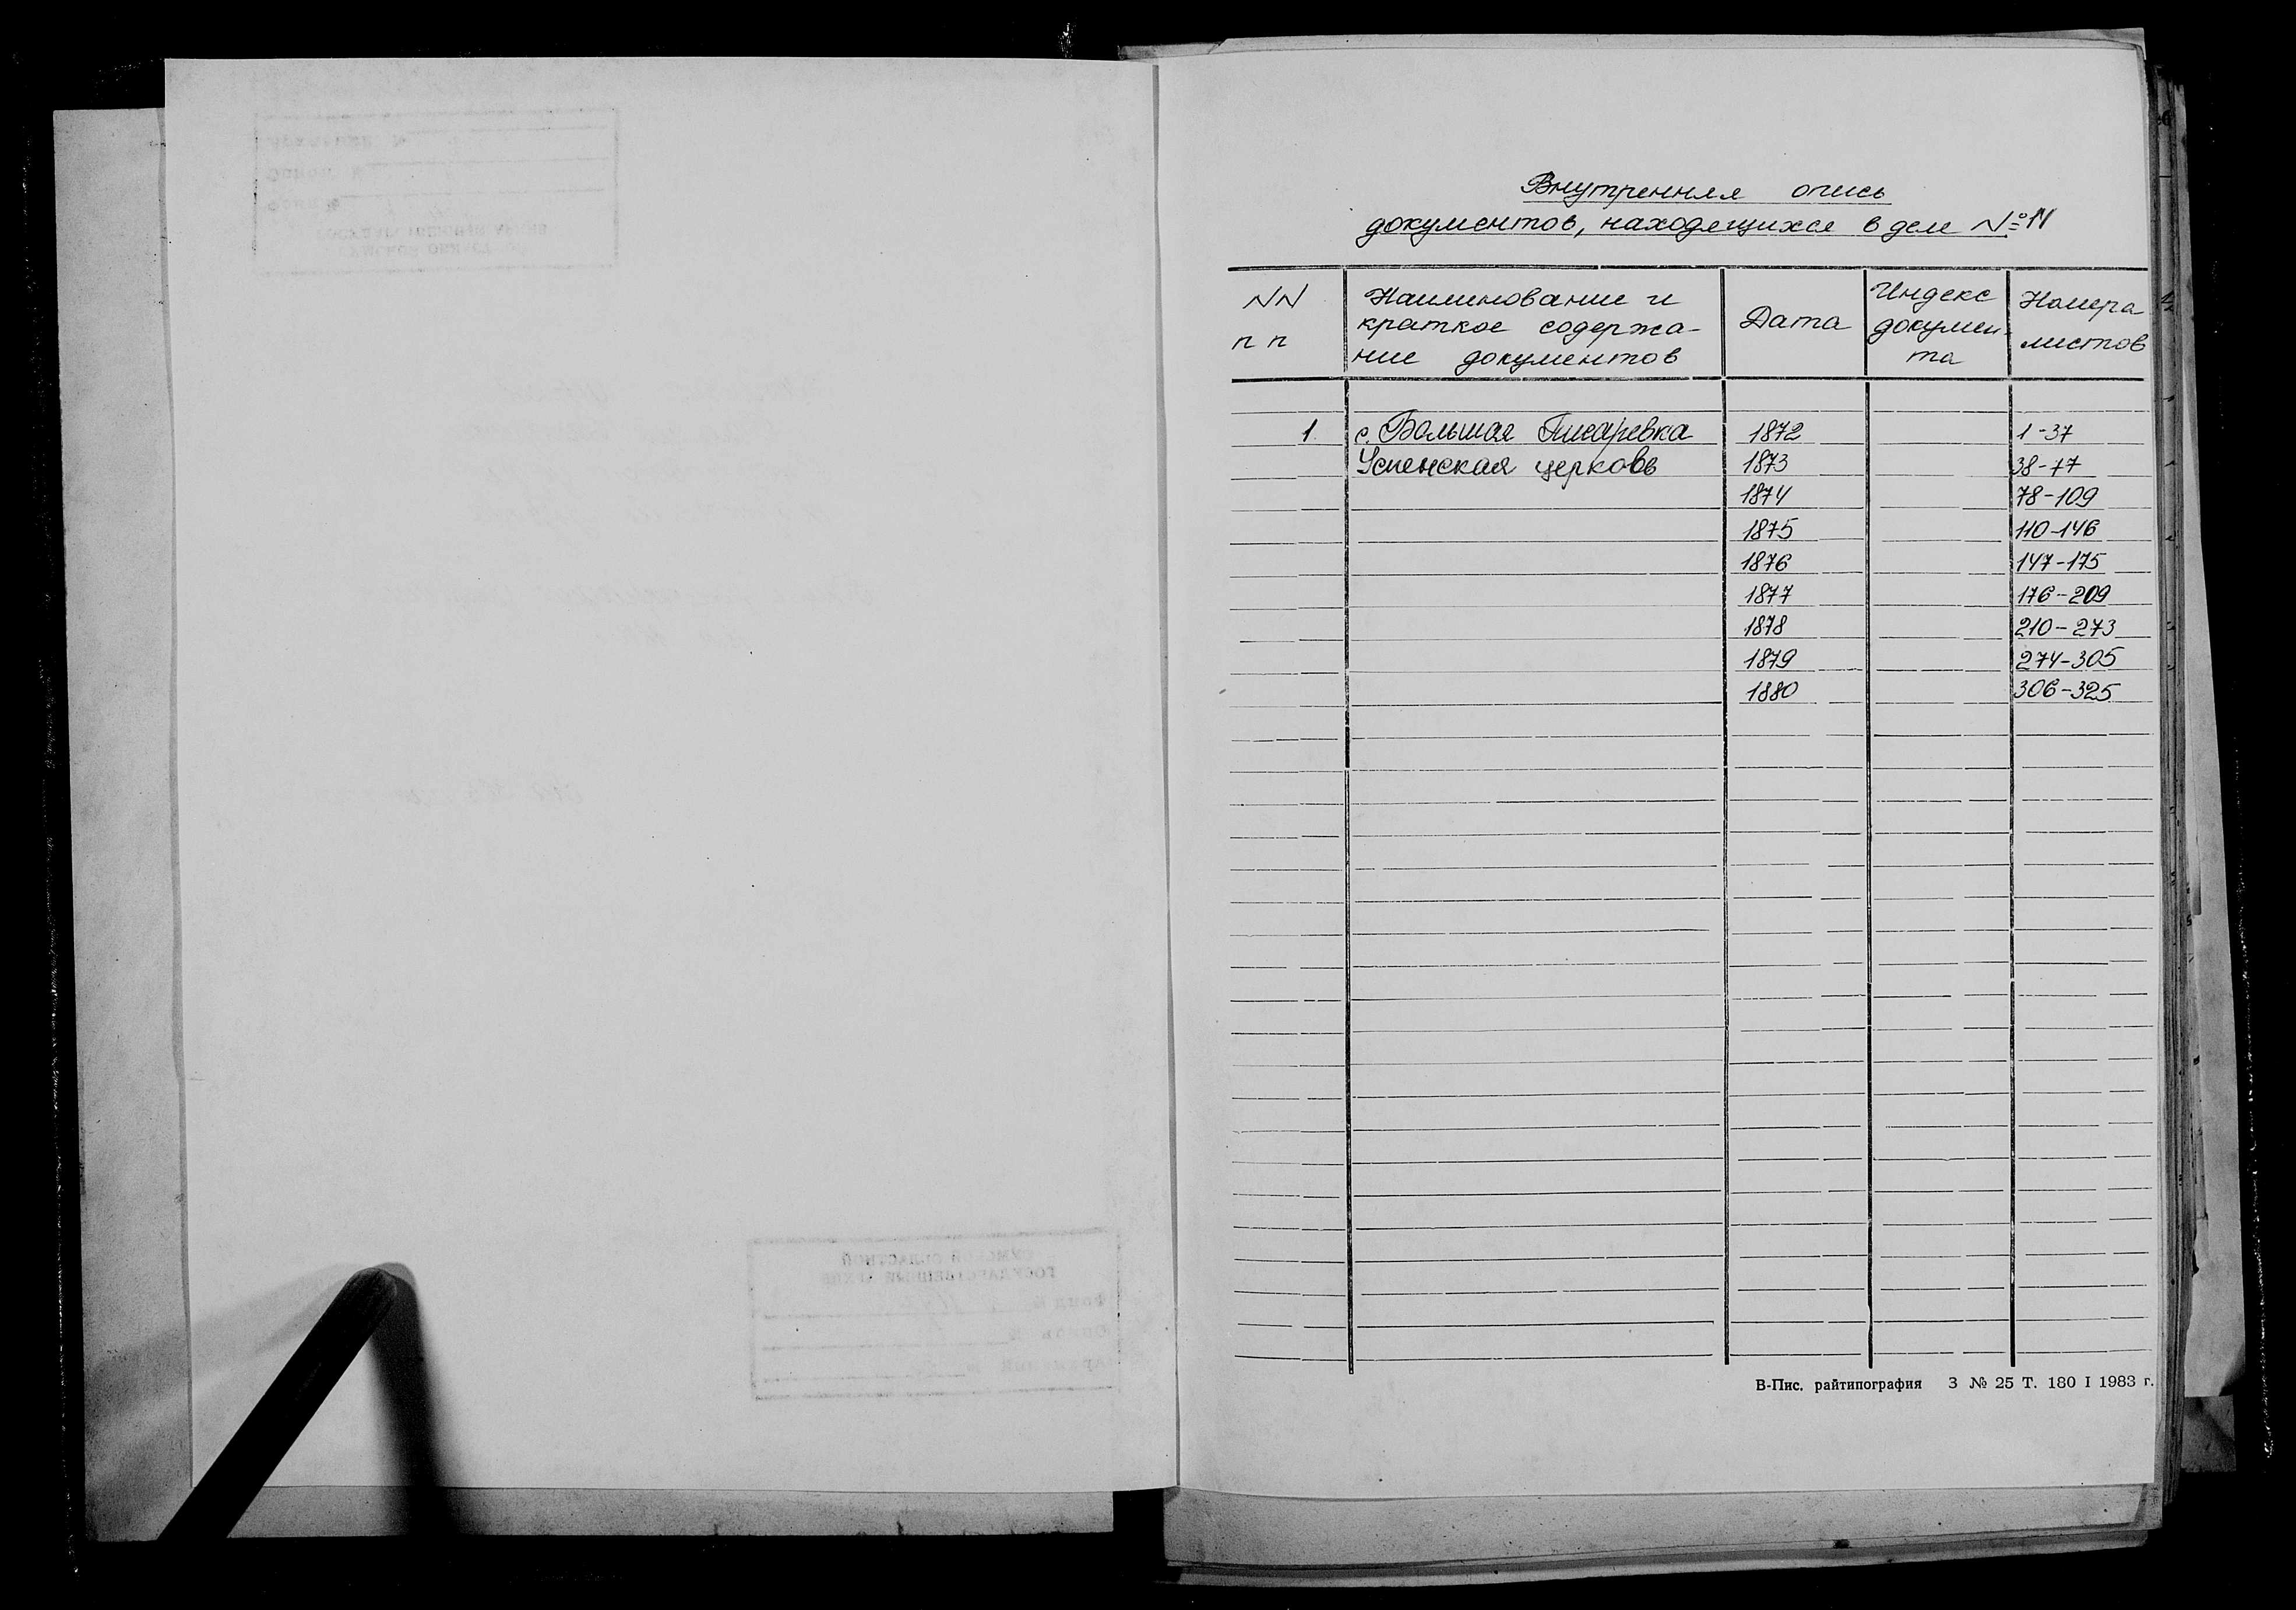 Внутренняя опись
документов, находящихся в деле №11
NN
пп
Наименование и
краткое содержа-
ние документов
Дата
Индекс
докумен-
та
Номера
листов
1. с. Большая Писаревка 1872 1-37
Успенская церковь 1873 38-77
1874 78-109
1875 110-146
1876 147-175
1877 176-209
1878 210-273
1879 274-305
1880 306-325
В-Пис. райтипография 3 № 25 Т. 180 I 1983 г.